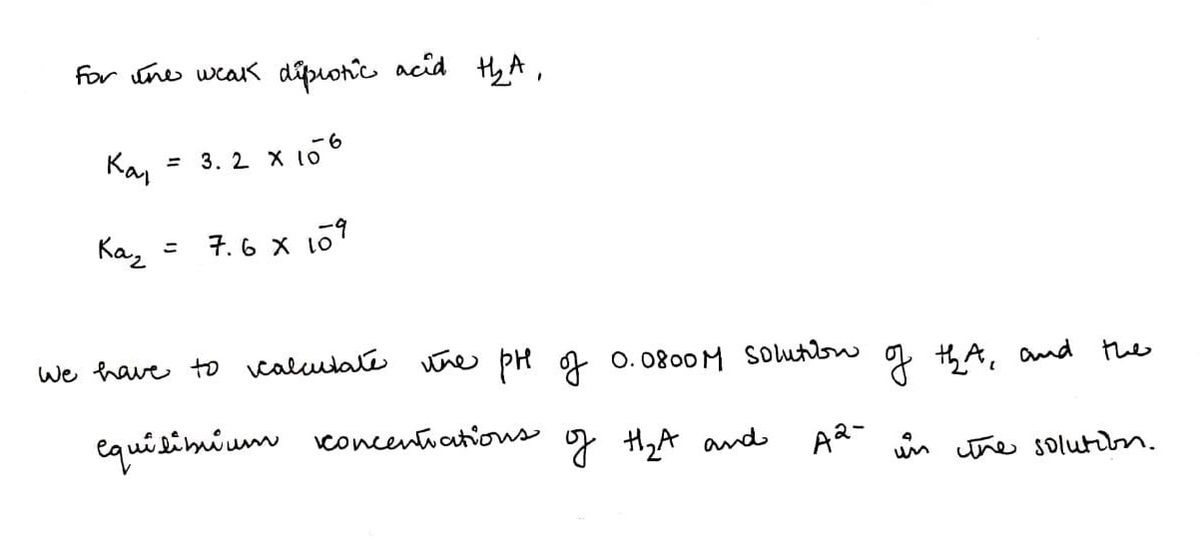 For the weak diprotic acid H₂A,
Ka₁ = 3.2 × 10⁻⁶
Ka₂ = 7.6 × 10⁻⁹
We have to calculate the pH of 0.0800M solution of H₂A, and the
equilibrium concentrations of H₂A and A²⁻ in the solution.